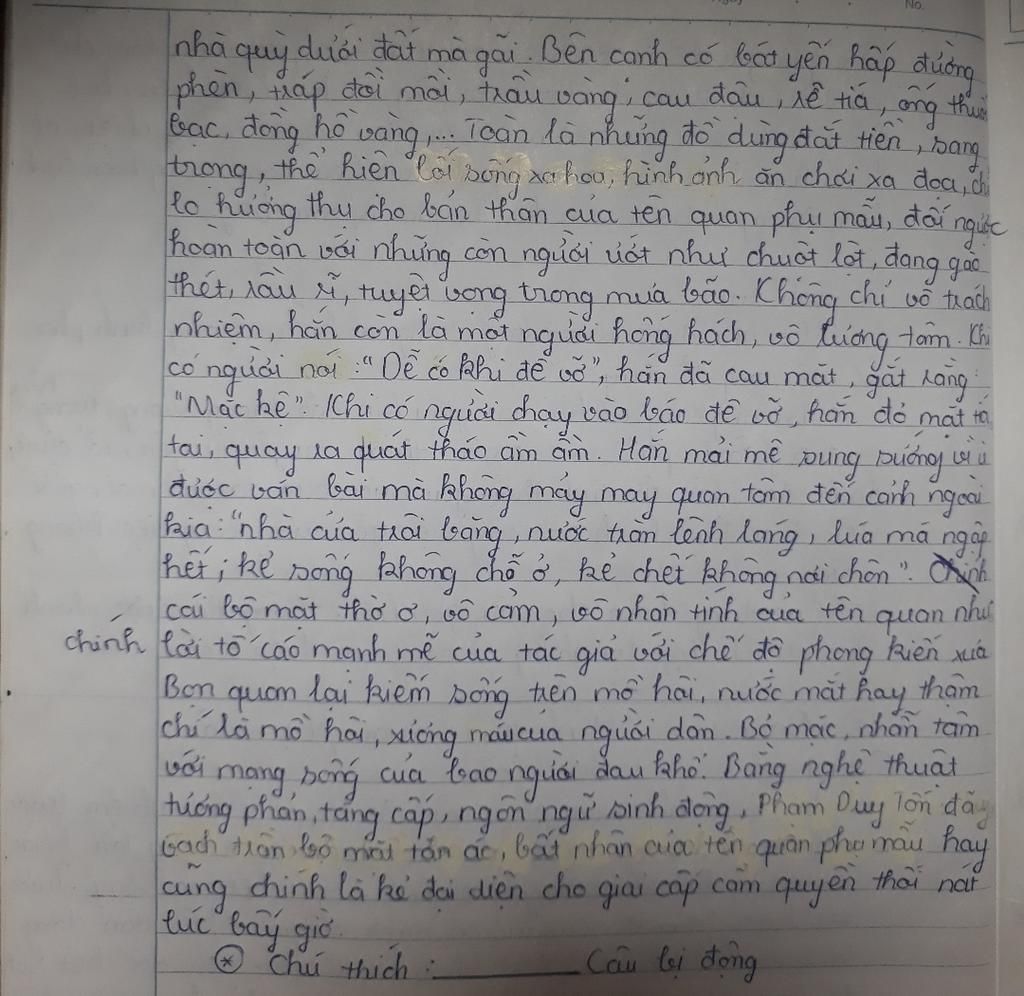 No.
nhà quỳ dưới đất mà gãi. Bên cạnh có bát yến hấp đường
phèn, tráp đồi mồi, trầu vàng, cau đậu, rễ tía, ống thuốc
bạc, đồng hồ vàng,... Toàn là những đồ dùng đắt tiền, sang
trọng, thể hiện lối sống xa hoa, hình ảnh ăn chơi xa đọa, chỉ
lo hưởng thụ cho bản thân của tên quan phụ mẫu, đối ngược
hoàn toàn với những còn người ướt như chuột lột, đang gào
thét, rầu rĩ, tuyệt vọng trong mưa bão. Không chỉ vô trách
nhiệm, hắn còn là một người hống hách, vô lương tâm. Khi
có người nói : "Dễ có khi đê vỡ", hắn đã cau mặt, gắt rằng:
"Mặc kệ". Khi có người chạy vào báo đê vỡ, hắn đỏ mặt tía
tai, quay ra quát tháo ầm ầm. Hắn mải mê sung sướng vì ù
được ván bài mà không mảy may quan tâm đến cảnh ngoài
kia: "nhà cửa trôi băng, nước tràn lênh láng, lúa má ngập
hết; kẻ sống không chỗ ở, kẻ chết không nơi chôn".
cái bộ mặt thờ ơ, vô cảm, vô nhân tính của tên quan như
chính lời tố cáo mạnh mẽ của tác giả với chế độ phong kiến xưa
Bọn quan lại kiếm sống trên mồ hôi, nước mắt hay thậm
chí là mồ hôi, xương máu của người dân. Bỏ mặc, nhẫn tâm
với mạng sống của bao người đau khổ. Bằng nghệ thuật
tương phản, tăng cấp, ngôn ngữ sinh động, Phạm Duy Tốn đã
vạch trần bộ mặt tàn ác, bất nhân của tên quan phụ mẫu hay
cũng chính là kẻ đại diện cho giai cấp cầm quyền thối nát
lúc bấy giờ.
* Chú thích : ________ Câu bị động